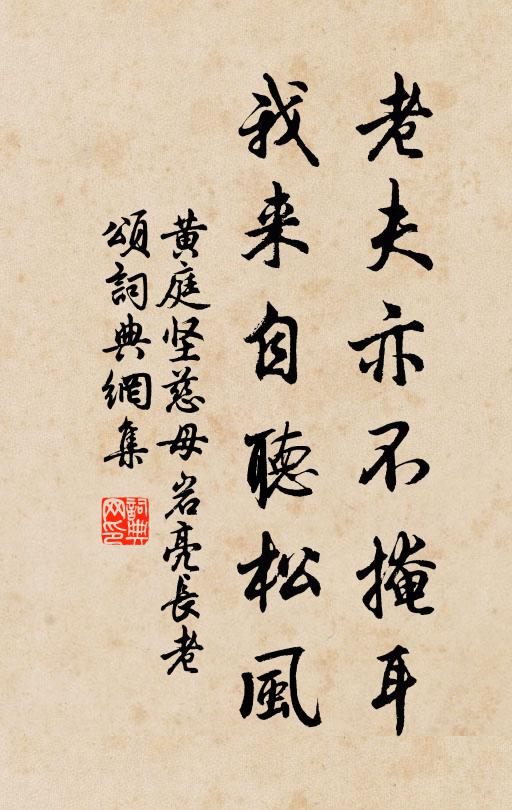 老夫亦不掩耳
我来自聽松風
黄庭坚慈母岩亮長老
頌詞典網集
詞典网印